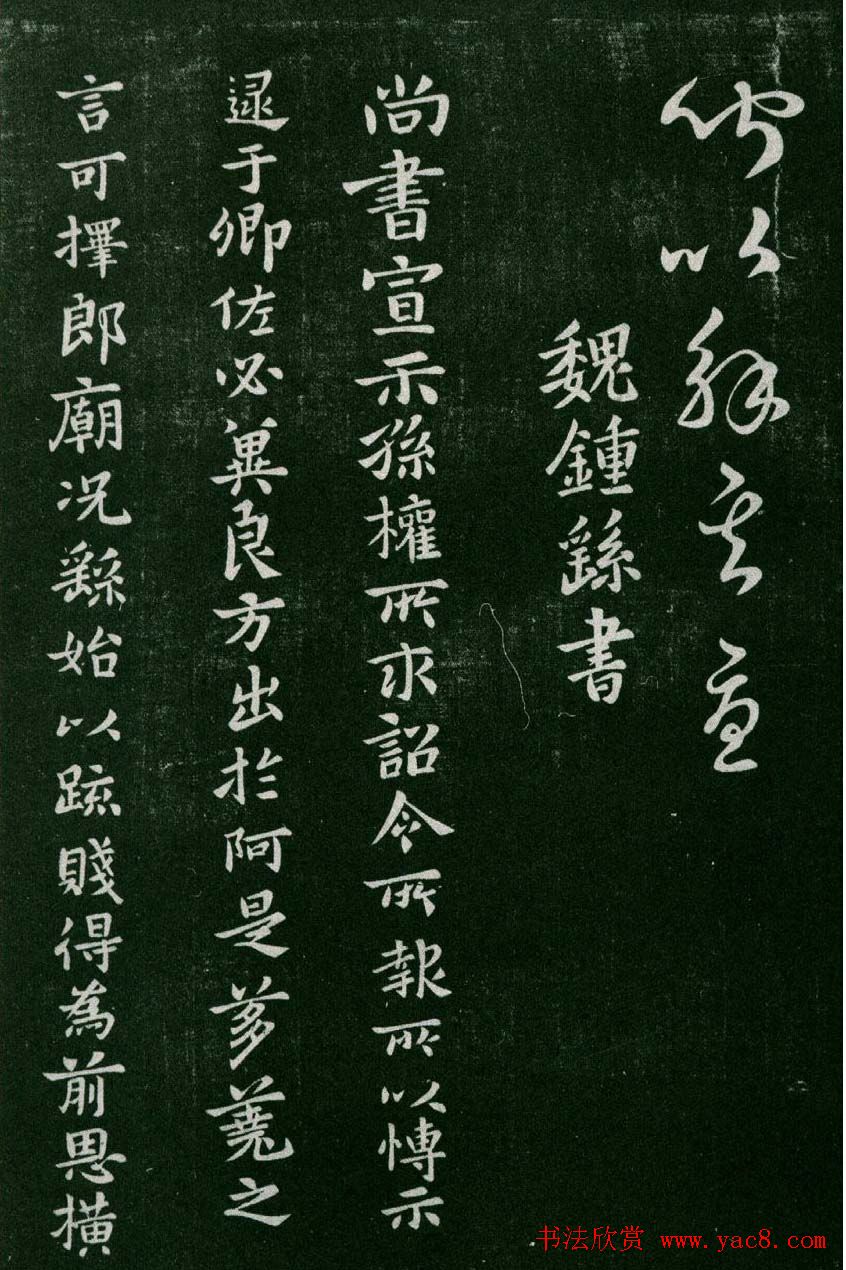 以解其
魏鍾繇書
尚書宣示孫權所求詔令所報所以愽示
逮于卿佐必冀良方出於阿是芻蕘之
言可擇郎廟况繇始以疏賤得為前恩橫
书法欣赏 www.yac8.com